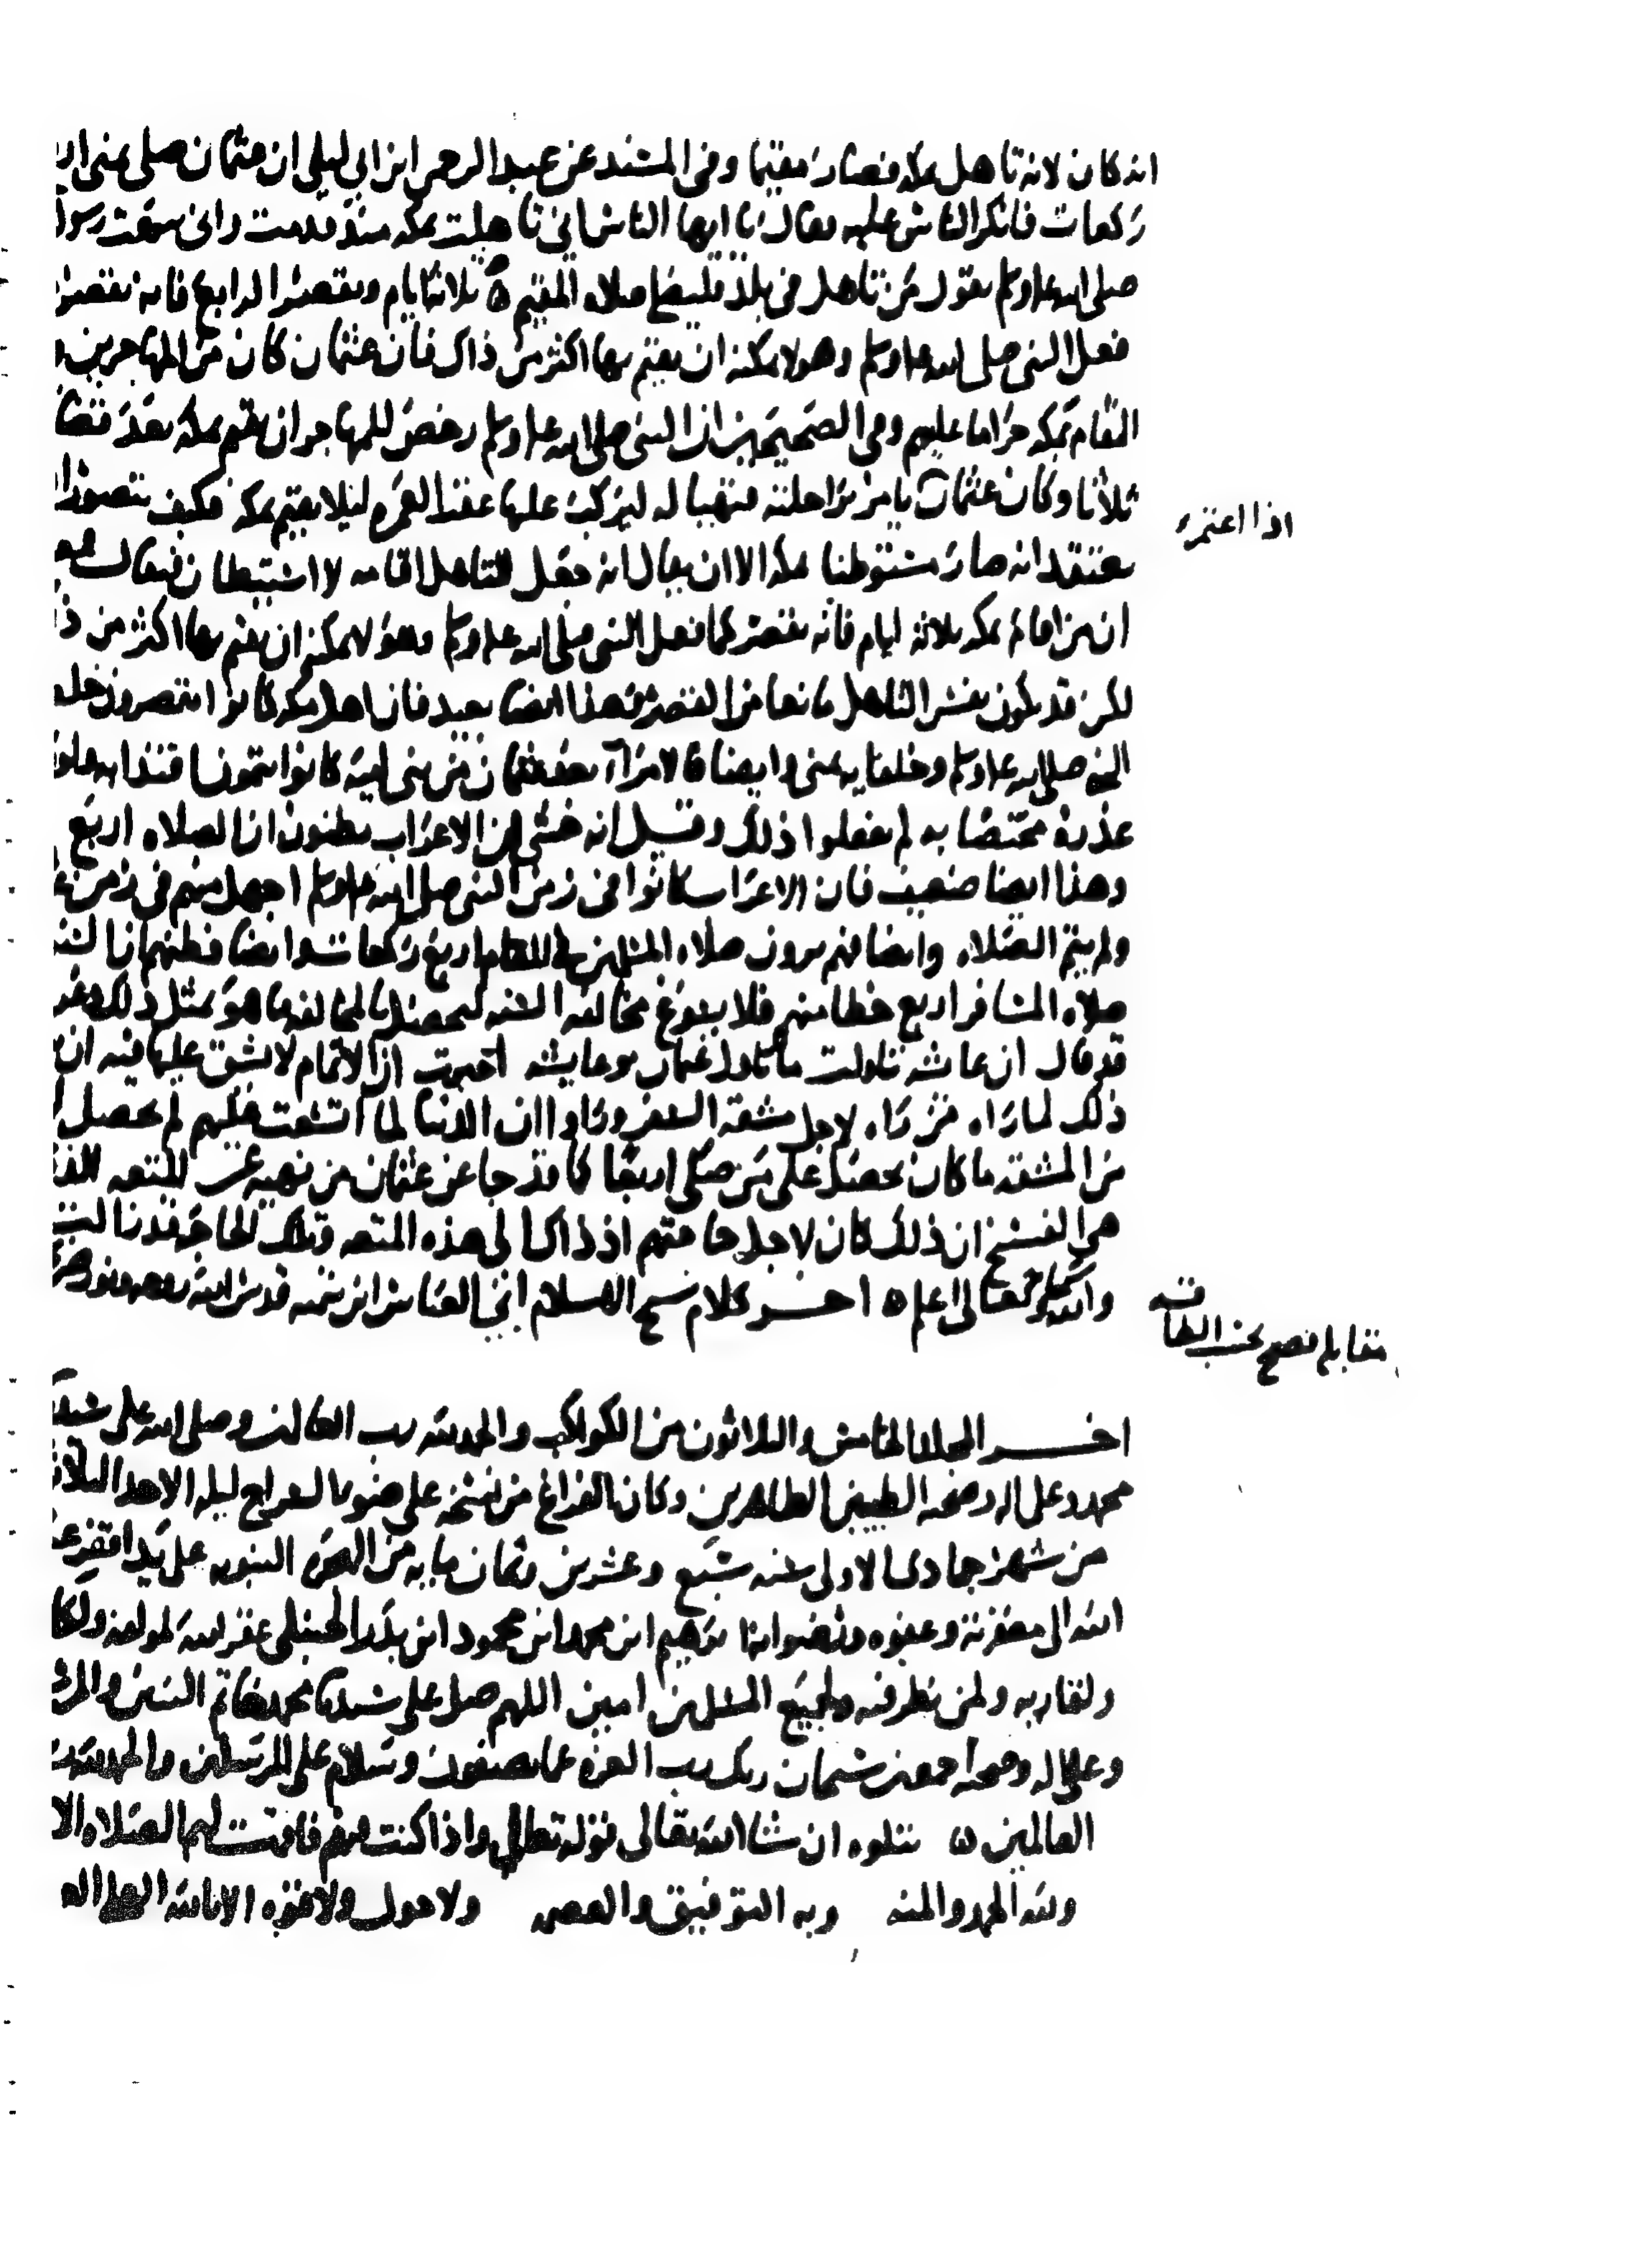 انه كان لانه تاهل بمكه فصار مقيما وفى المسند عن عبد الرحمن ابن ابي ليلى ان عثمان صلى بمنى ار
ركعات فانكر الناس عليه فقال يا ايها الناس اني تاهلت بمكه منذ قدمت واني سمعت رسول
صلى الله عليه وسلم يقول من تاهل في بلد فليصل صلاه المقيم ثلاثة ايام ويقصر الرابع فانه يقصر
فعل النبي صلى الله عليه وسلم وهو لا يمكنه ان يقيم بها اكثر من ذاك فان عثمان كان من المهاجرين
المقام بمكه حراما عليهم وفي الصحيحين ان النبي صلى الله عليه وسلم رخص للمهاجر ان يقيم بمكه بعد قضا
ثلاثا وكان عثمان يامر براحلته فتهيا له ليركب عليها عقب العمره ليلا يقيم بمكه فكيف يتصور ا
اذا اعتمر
يعتقد انه صار مستوطنا بمكه الا ان يقال انه جعل التاهل اقامه لا استيطان فيقال
ان من اقام بمكه ثلاثه ايام فانه يقصر كما فعل النبي صلى الله عليه وسلم وهو لا يمكنه ان يقيم بها اكثر من ذ
لكن قد يكون نفس التاهل مانعا من القصر وهذا ايضا بعيد فان اهل مكه كانوا يقصرون خلف
النبي صلى الله عليه وسلم وخلفايه بمنى وايضا فالامرا بعد عثمان من بني اميه كانوا يتمون اقتدا به ولو
عذره مختصا به لم يفعلوا ذلك وقيل انه خشي ان الاعراب يظنون ان الصلاه اربع
وهذا ايضا ضعيف فان الاعراب كانوا في زمن النبي صلى الله عليه وسلم اجهل منهم في زمن
ولم يتم الصلاه وايضا فهم يرون صلاه المسلمين في المقام اربع ركعات وايضا فظنهم ان السنه
صلاه المسافر اربع خطا منهم فلا يسوغ مخالفه السنه ليحصل بالمخالفه ما هو بمثل ذلك
قد قال ان عائشه تاولت ما تاول عثمان وعايشه اخبرت ان الاتمام لا يشق عليها فيه ان
ذلك لما راه من راه لاجل مشقه السفر وراوا ان الدنيا لما اتسعت عليهم لم يحصل
من المشقه ما كان يحصل على من صلى اربعا كما قد جا عن عثمان من نهيه عن المتعه التي
هي الفسخ ان ذلك كان لاجل حاجتهم اذ ذاك الى هذه المتعه وتلك الحاجه قد زالت
والله تعالى اعلم اخر كلام شيخ الاسلام ابي العباس ابن تيميه قدس الله روحه ونور
مقابله فصح بحسب الطاقه
اخر المجلد الخامس والثلاثون من الكواكب والحمد لله رب العالمين وصلى الله على سيد
محمد وعلى اله وصحبه الطيبين الطاهرين وكان الفراغ من نسخه على ضو السراج ليله الاحد الثلاث
من شهر جمادى الاولى سنه سبع وعشرين وثمان مايه من الهجره النبويه على يد افقر
الله الى مغفرته وعفوه ورضوانه ابرهيم ابن محمد ابن محمود ابن بدر الحنبلي غفر الله لمولفه ولكا
ولقاريه ولمن نظر فيه ولجميع المسلمين امين اللهم صل على سيدنا محمد خاتم النبيين والمر
وعلى اله وصحبه اجمعين سبحان ربك رب العزه عما يصفون وسلام على المرسلين والحمد لله
العالمين ٥ يتلوه ان شا الله تعالى قوله تعالى واذا كنت فيهم فاقمت لهم الصلاه الا
ولله الحمد والمنه وبه التوفيق والعصمه ولا حول ولا قوه الا بالله العلي